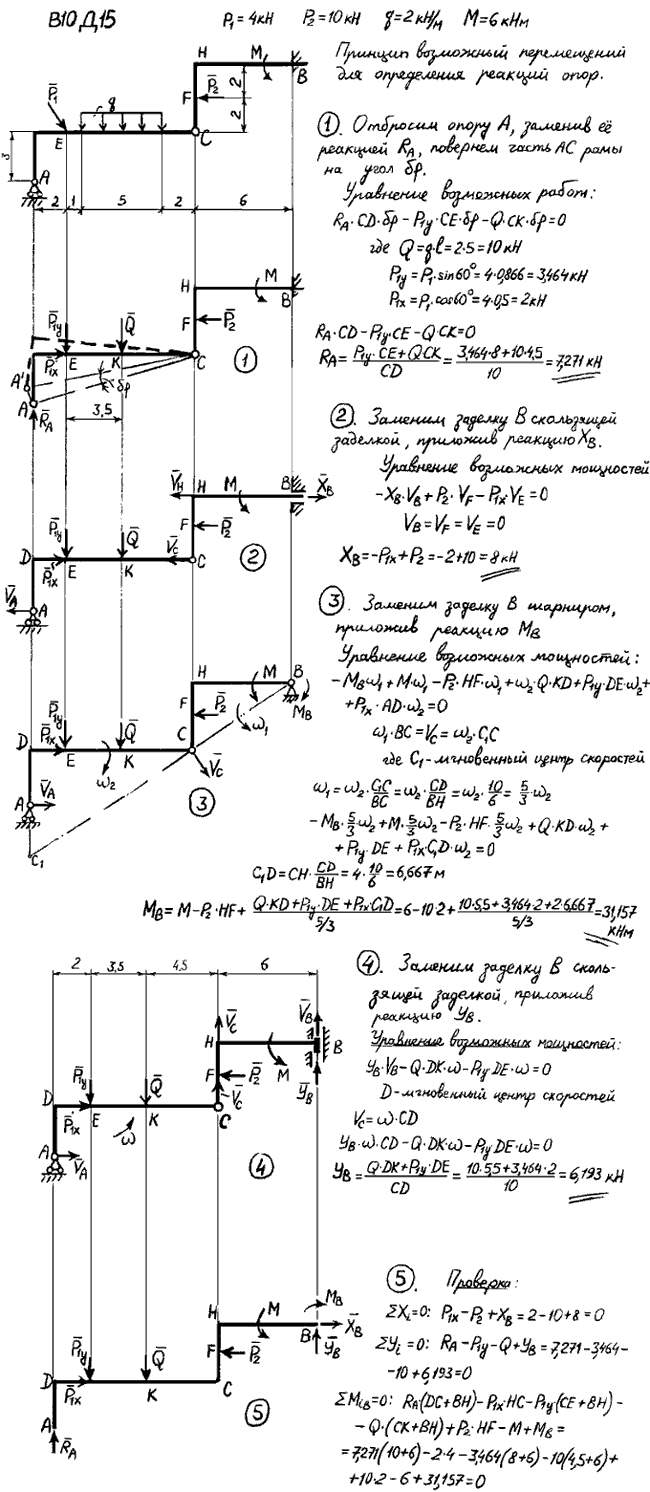 В10 Д15
P₁ = 4кН P₂ = 10кН q = 2кН/м M = 6кНм
Принцип возможный перемещений
для определения реакций опор.
H M B
P̄₁ q F P̄₂ 2
E C 2
3 A
2 1 5 2 6
① . Отбросим опору А, заменив её
реакцией R_A, повернем часть АС рамы
на угол δφ.
Уравнение возможных работ:
R_A·CD·δφ – P₁y·CE·δφ – Q·CK·δφ = 0
где Q = q·l = 2·5 = 10 кН
P₁y = P₁·sin60° = 4·0,866 = 3,464кН
P₁x = P₁·cos60° = 4·0,5 = 2кН
R_A·CD – P₁y·CE – Q·CK = 0
R_A = (P₁y·CE + Q·CK)/CD = (3,464·8 + 10·4,5)/10 = 7,271 кН
H M B
P̄₁y Q̄ F P̄₂
P̄₁x E K C ①
A' δφ
A R̄_A 3,5
② . Заменим заделку В скользящей
заделкой, приложив реакцию X_B.
Уравнение возможных мощностей
-X_B·V_B + P₂·V_F – P₁x·V_E = 0
V_B = V_F = V_E = 0
X_B = –P₁x + P₂ = –2+10 = 8 кН
V̄_H H M B X̄_B
P̄₁y Q̄ F P̄₂
D P̄₁x E K V̄_C C ②
V̄_A A
③ . Заменим заделку В шарниром,
приложив реакцию M_B
Уравнение возможных мощностей:
– M_B·ω₁ + M·ω₁ – P₂·HF·ω₁ + ω₂·Q·KD + P₁y·DE·ω₂ +
+ P₁x·AD·ω₂ = 0
ω₁·BC = V_C = ω₂·C₁C
где С₁ - мгновенный центр скоростей
ω₁ = ω₂·C₁C/BC = ω₂·CD/BH = ω₂·10/6 = 5/3·ω₂
– M_B·5/3·ω₂ + M·5/3ω₂ – P₂·HF·5/3ω₂ + Q·KD·ω₂ +
+ P₁y·DE + P₁x·C₁D·ω₂ = 0
C₁D = CH·CD/BH = 4·10/6 = 6,667 м
M_B = M – P₂·HF + (Q·KD + P₁y·DE + P₁x·C₁D)/(5/3) = 6 – 10·2 + (10·5,5 + 3,464·2 + 2·6,667)/(5/3) = 31,157 кНм
H M B
P̄₁y Q̄ F P̄₂ M_B
D P̄₁x E K C ω₁
ω₂ V̄_C
A V̄_A ③
C₁
2 3,5 4,5 6
④ . Заменим заделку В сколь-
зящей заделкой, приложив
реакцию У_B.
Уравнение возможных мощностей:
У_B·V_B – Q·DK·ω – P₁y·DE·ω = 0
D - мгновенный центр скоростей
V_C = ω·CD
У_B·ω·CD – Q·DK·ω – P₁y·DE·ω = 0
У_B = (Q·DK + P₁y·DE)/CD = (10·5,5 + 3,464·2)/10 = 6,193 кН
V̄_C V̄_B
H M B
P̄₁y Q̄ F P̄₂ Ȳ_B
D P̄₁x E K V̄_C C
ω
A V̄_A ④
⑤ . Проверка:
ΣX_i = 0: P₁x – P₂ + X_B = 2 – 10 + 8 = 0
ΣУ_i = 0: R_A – P₁y – Q + У_B = 7,271 – 3,464 –
– 10 + 6,193 = 0
ΣM_iB = 0: R_A(DC+BH) – P₁x·HC – P₁y(CE+BH) –
– Q·(CK+BH) + P₂·HF – M + M_B =
= 7,271(10+6) – 2·4 – 3,464(8+6) – 10(4,5+6) +
+ 10·2 – 6 + 31,157 = 0
M_B
H M B X̄_B
P̄₁y Q̄ F P̄₂ Ȳ_B
D P̄₁x E K C ⑤
A R̄_A